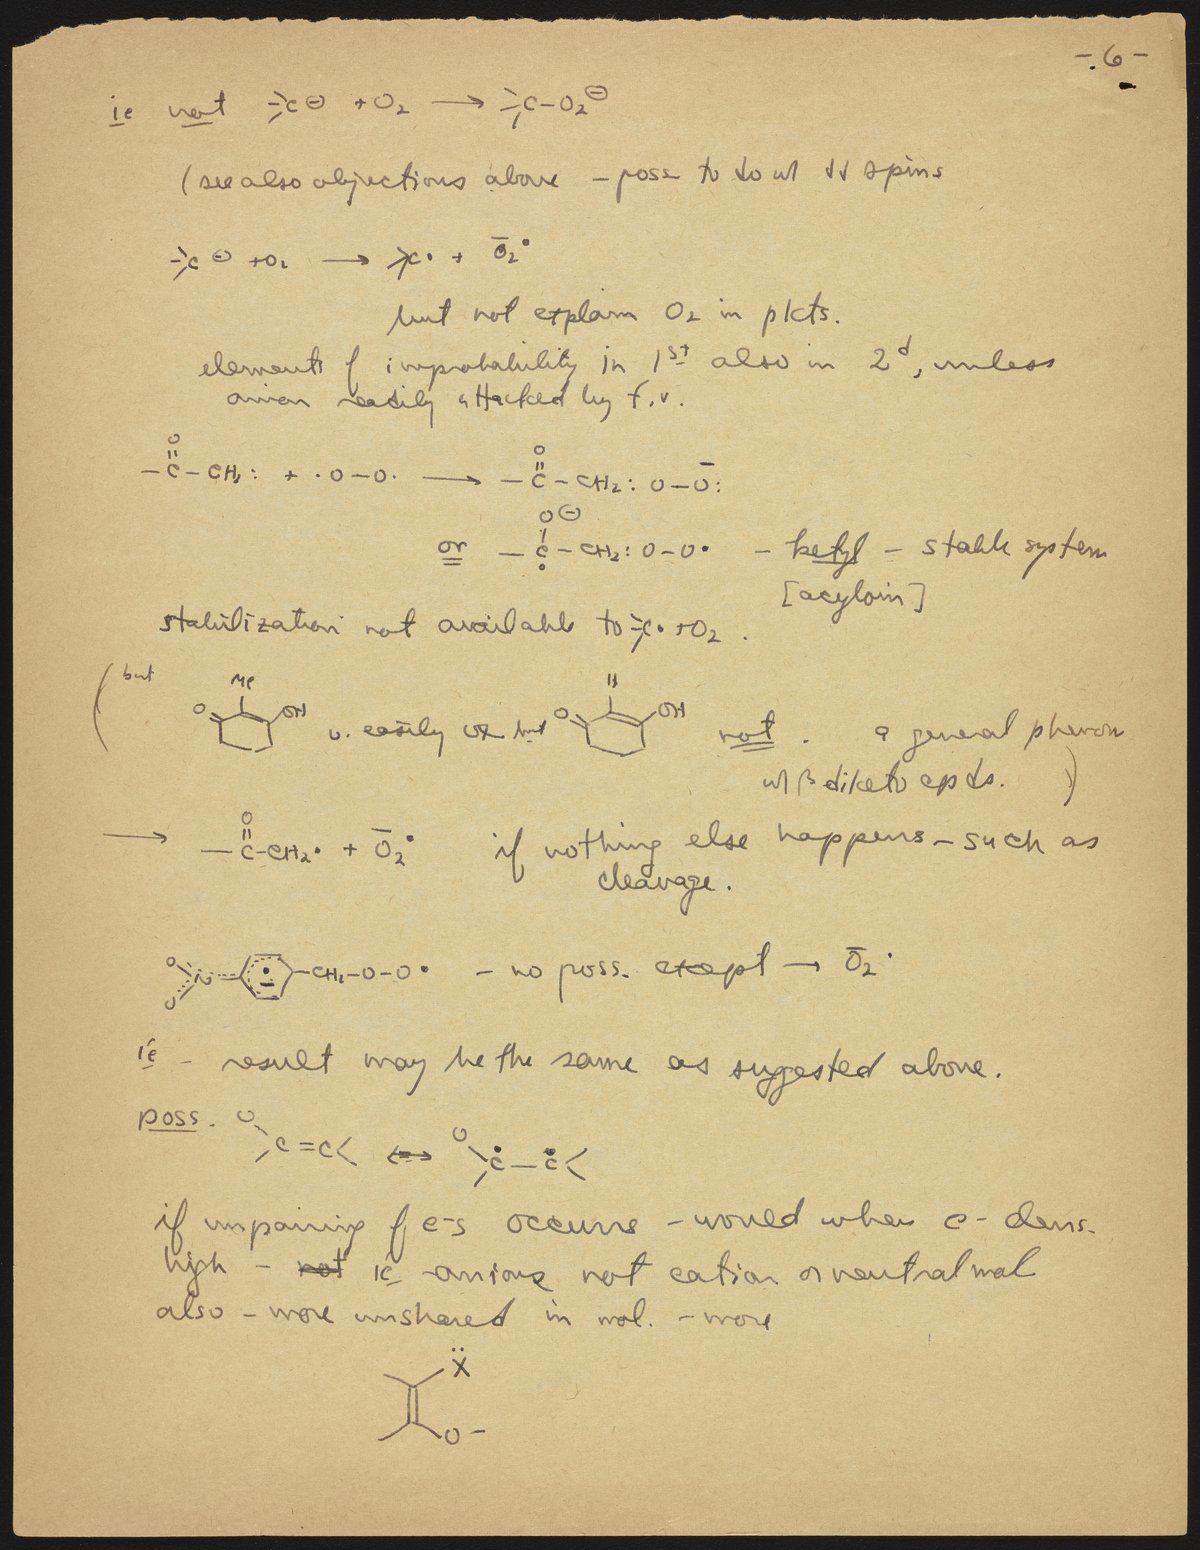 - 6 -
ie not ⩾C⊖ + O2 → ⩾C-O2⊖
(see also objections above - poss to do w/ ↓↓ spins
⩾C⊖ + O2 → ⩾C• + Ō2•
but not explain O2 in pdcts.
elements of improbability in 1st also in 2d, unless
anion readily attacked by f.r.
O
-C-CH2: + ·O-O· → -C-CH2: O-Ō:
or -C-CH2: O-O• - ketyl - stable system
[acyloin]
stabilization not available to ⩾C• + O2.
(but Me
O OH v. easily ox but O H OH not. a general phenom
w/ β diketo cpds.)
→ -C-CH2• + Ō2• if nothing else happens - such as
cleavage.
O N O -CH2-O-O• - no poss. except → Ō2•
ie - result may be the same as suggested above.
poss. O C=C< ↔ O C-C<
if unpairing of e-s occurs - would when e- dens.
high - not ie anions not cation or neutral mol
also - more unshared in mol. - more
Ẍ
O-